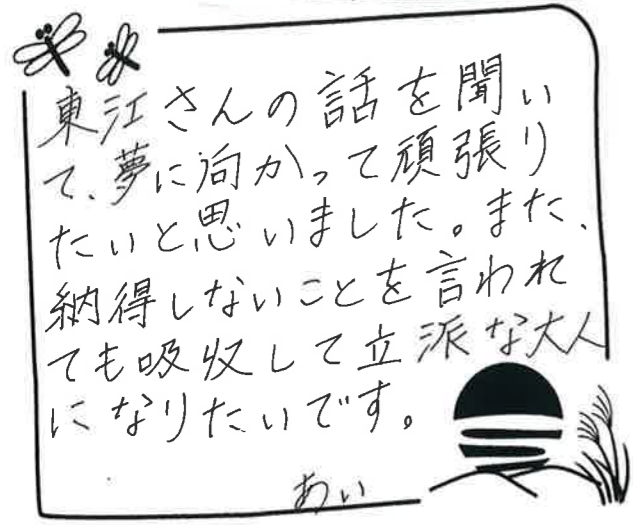 東江さんの話を聞い
て、夢に向かって頑張り
たいと思いました。また、
納得しないことを言われ
ても吸収して立派な大人
になりたいです。
あい